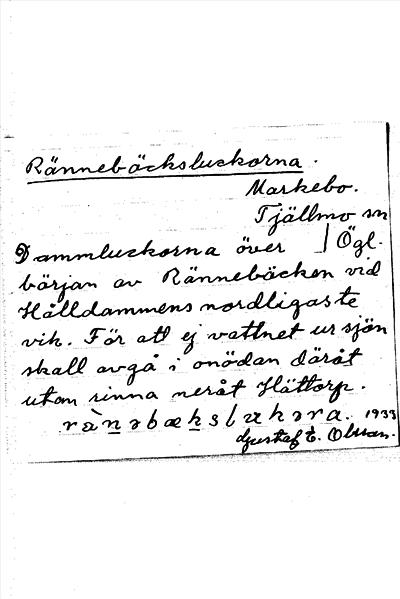 Rännebäcksluckorna.
Markebo.
Tjällmo sn
Dammluckorna över Ögl.
början av Rännebäcken vid
Hålldammens nordligaste
vik. För att ej vattnet ur sjön
skall avgå i onödan däråt
utan rinna neråt Hättorp.
1933
Gustaf E. Olsson.